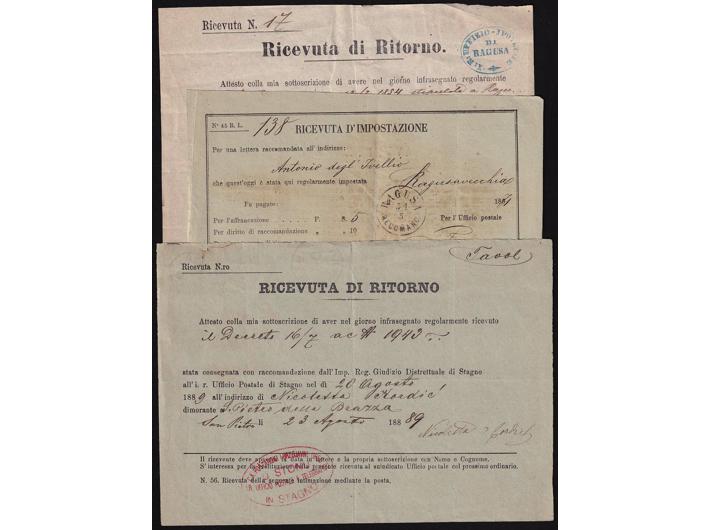 Ricevuta N. 17
Ricevuta di Ritorno.
I. R. UFFIZIO
DI
RAGUSA
Attesto colla mia sottoscrizione di avere nel giorno infrasegnato regolarmente
1884 a
N° 45 R. L. 138 RICEVUTA D'IMPOSTAZIONE
Per una lettera raccomandata all' indirizzo:
Antonio degl' Ivellio
che quest'oggi è stata qui regolarmente impostata Ragusavecchia
187
Fu pagato:
RAGUSA
RECOMAND
Per l'affrancazione F. S. 5 Per l'Ufficio postale
Per diritto di raccomandazione " " 10
Tavol.
Ricevuta N.ro
RICEVUTA DI RITORNO
Attesto colla mia sottoscrizione di aver nel giorno infrasegnato regolarmente ricevuto
il Decreto 16/7 a c № 1943
stata consegnata con raccomandazione dall'Imp. Reg. Giudizio Distrettuale di Stagno
all'i. r. Ufficio Postale di Stagno nel dì 20 Agosto
1889 all'indirizzo di Nicoletta Kordić
dimorante S. Pietro della Brazza
San Pietro li 23 Agosto 188 89
Il ricevente deve apporre la data in lettere e la propria sottoscrizione con Nome e Cognome.
S' interessa per la restituzione della presente ricevuta al suindicato Ufficio postale col prossimo ordinario.
N. 56. Ricevuta della seguente intimazione mediante la posta.
U STONU
I. R. UFFICIO POSTALE E TELEGRAFICO
IN STAGNO